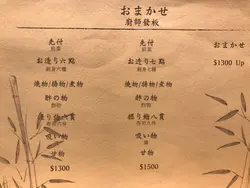 おまかせ
廚師發板
先付
前菜
お造り六點
刺身六種
燒物/揚物/煮物
酢の物
酢物
握り鮨六貫
吸い物
甘物
$1300
先付
前菜
お造り七點
刺身七種
燒物/揚物/煮物
酢の物
酢物
握り鮨八貫
吸い物
甘物
$1500
おまかせ
$1300 Up